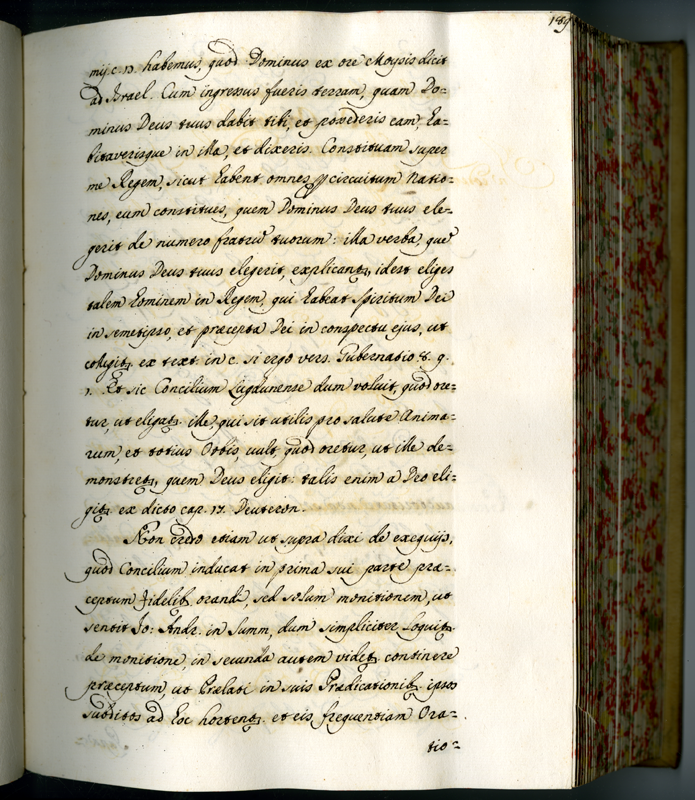 189
mij. c. 17. habemus, quod Dominus ex ore Moysis dicit
ad Israel. Cum ingressus fueris terram, quam Do=
minus Deus tuus dabit tibi, et possederis eam, ha=
bitaverisque in illa, et dixeris. Constituam super
me Regem, sicut habent omnes p circuitum Natio=
nes, eum constitues, quem Dominus Deus tuus ele=
gerit de numero fratrũ tuorum: illa verba, que
Dominus Deus tuus elegerit, explicantr, idest eliges
talem hominem in Regem, qui habeat Spiritum Dei
in semetipso, et præcepta Dei in conspectu ejus, ut
collegitr ex text. in c. si ergo vers. Gubernatio. 8. q.
1. Et sic Concilium Lugdunense dum voluit, quod ore=
tur, ut eligatr ille, qui sit utilis pro salute Anima=
rum, et totius Orbis vult, quod oretur, ut ille de=
monstretr, quem Deus eligit: talis enim a Deo eli=
gitr ex dicto cap. 17. Deuteron.
Non credo etiam ut supra dixi de exequijs,
quod Concilium inducat in prima sui parte præ=
ceptum fidelib. orandi, sed solum monitionem, ut
sentit Jo: Andr. in Summ, dum simpliciter loquitr
de monitione, in secunda autem videtr continere
præceptum, ut Prælati in suis Prædicationib. ipsos
subditos ad hoc hortentr et eis frequentiam Ora=
tio=